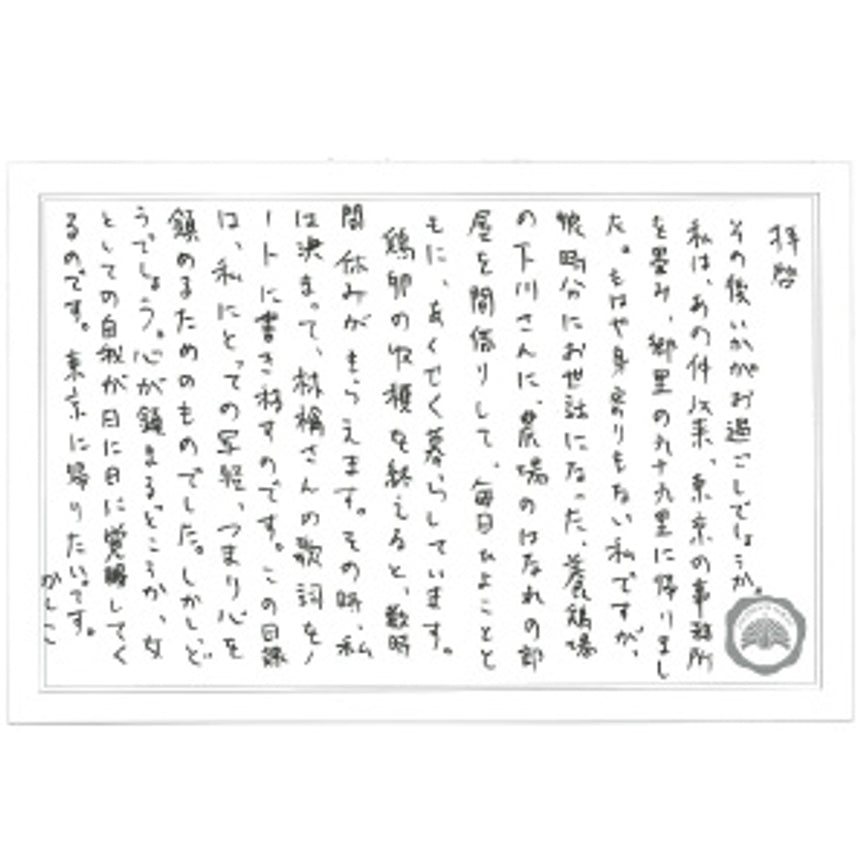 拝啓
その後いかがお過ごしでしょうか。
私は、あの件以来、東京の事務所
を畳み、郷里の九十九里に帰りまし
た。もはや身寄りもない私ですが、
娘時分にお世話になった、養鶏場
の下川さんに、農場のはなれの部
屋を間借りして、毎日ひよことと
もに、あくせく暮らしています。
鶏卵の収穫を終えると、数時
間休みがもらえます。その時、私
は決まって、林檎さんの歌詞をノ
ートに書き移すのです。この日課
は、私にとっての写経、つまり心を
鎮めるためのものでした。しかし、ど
うでしょう。心が鎮まるどころか、女
としての自我が日に日に覚醒してく
るのです。東京に帰りたいです。
かしこ